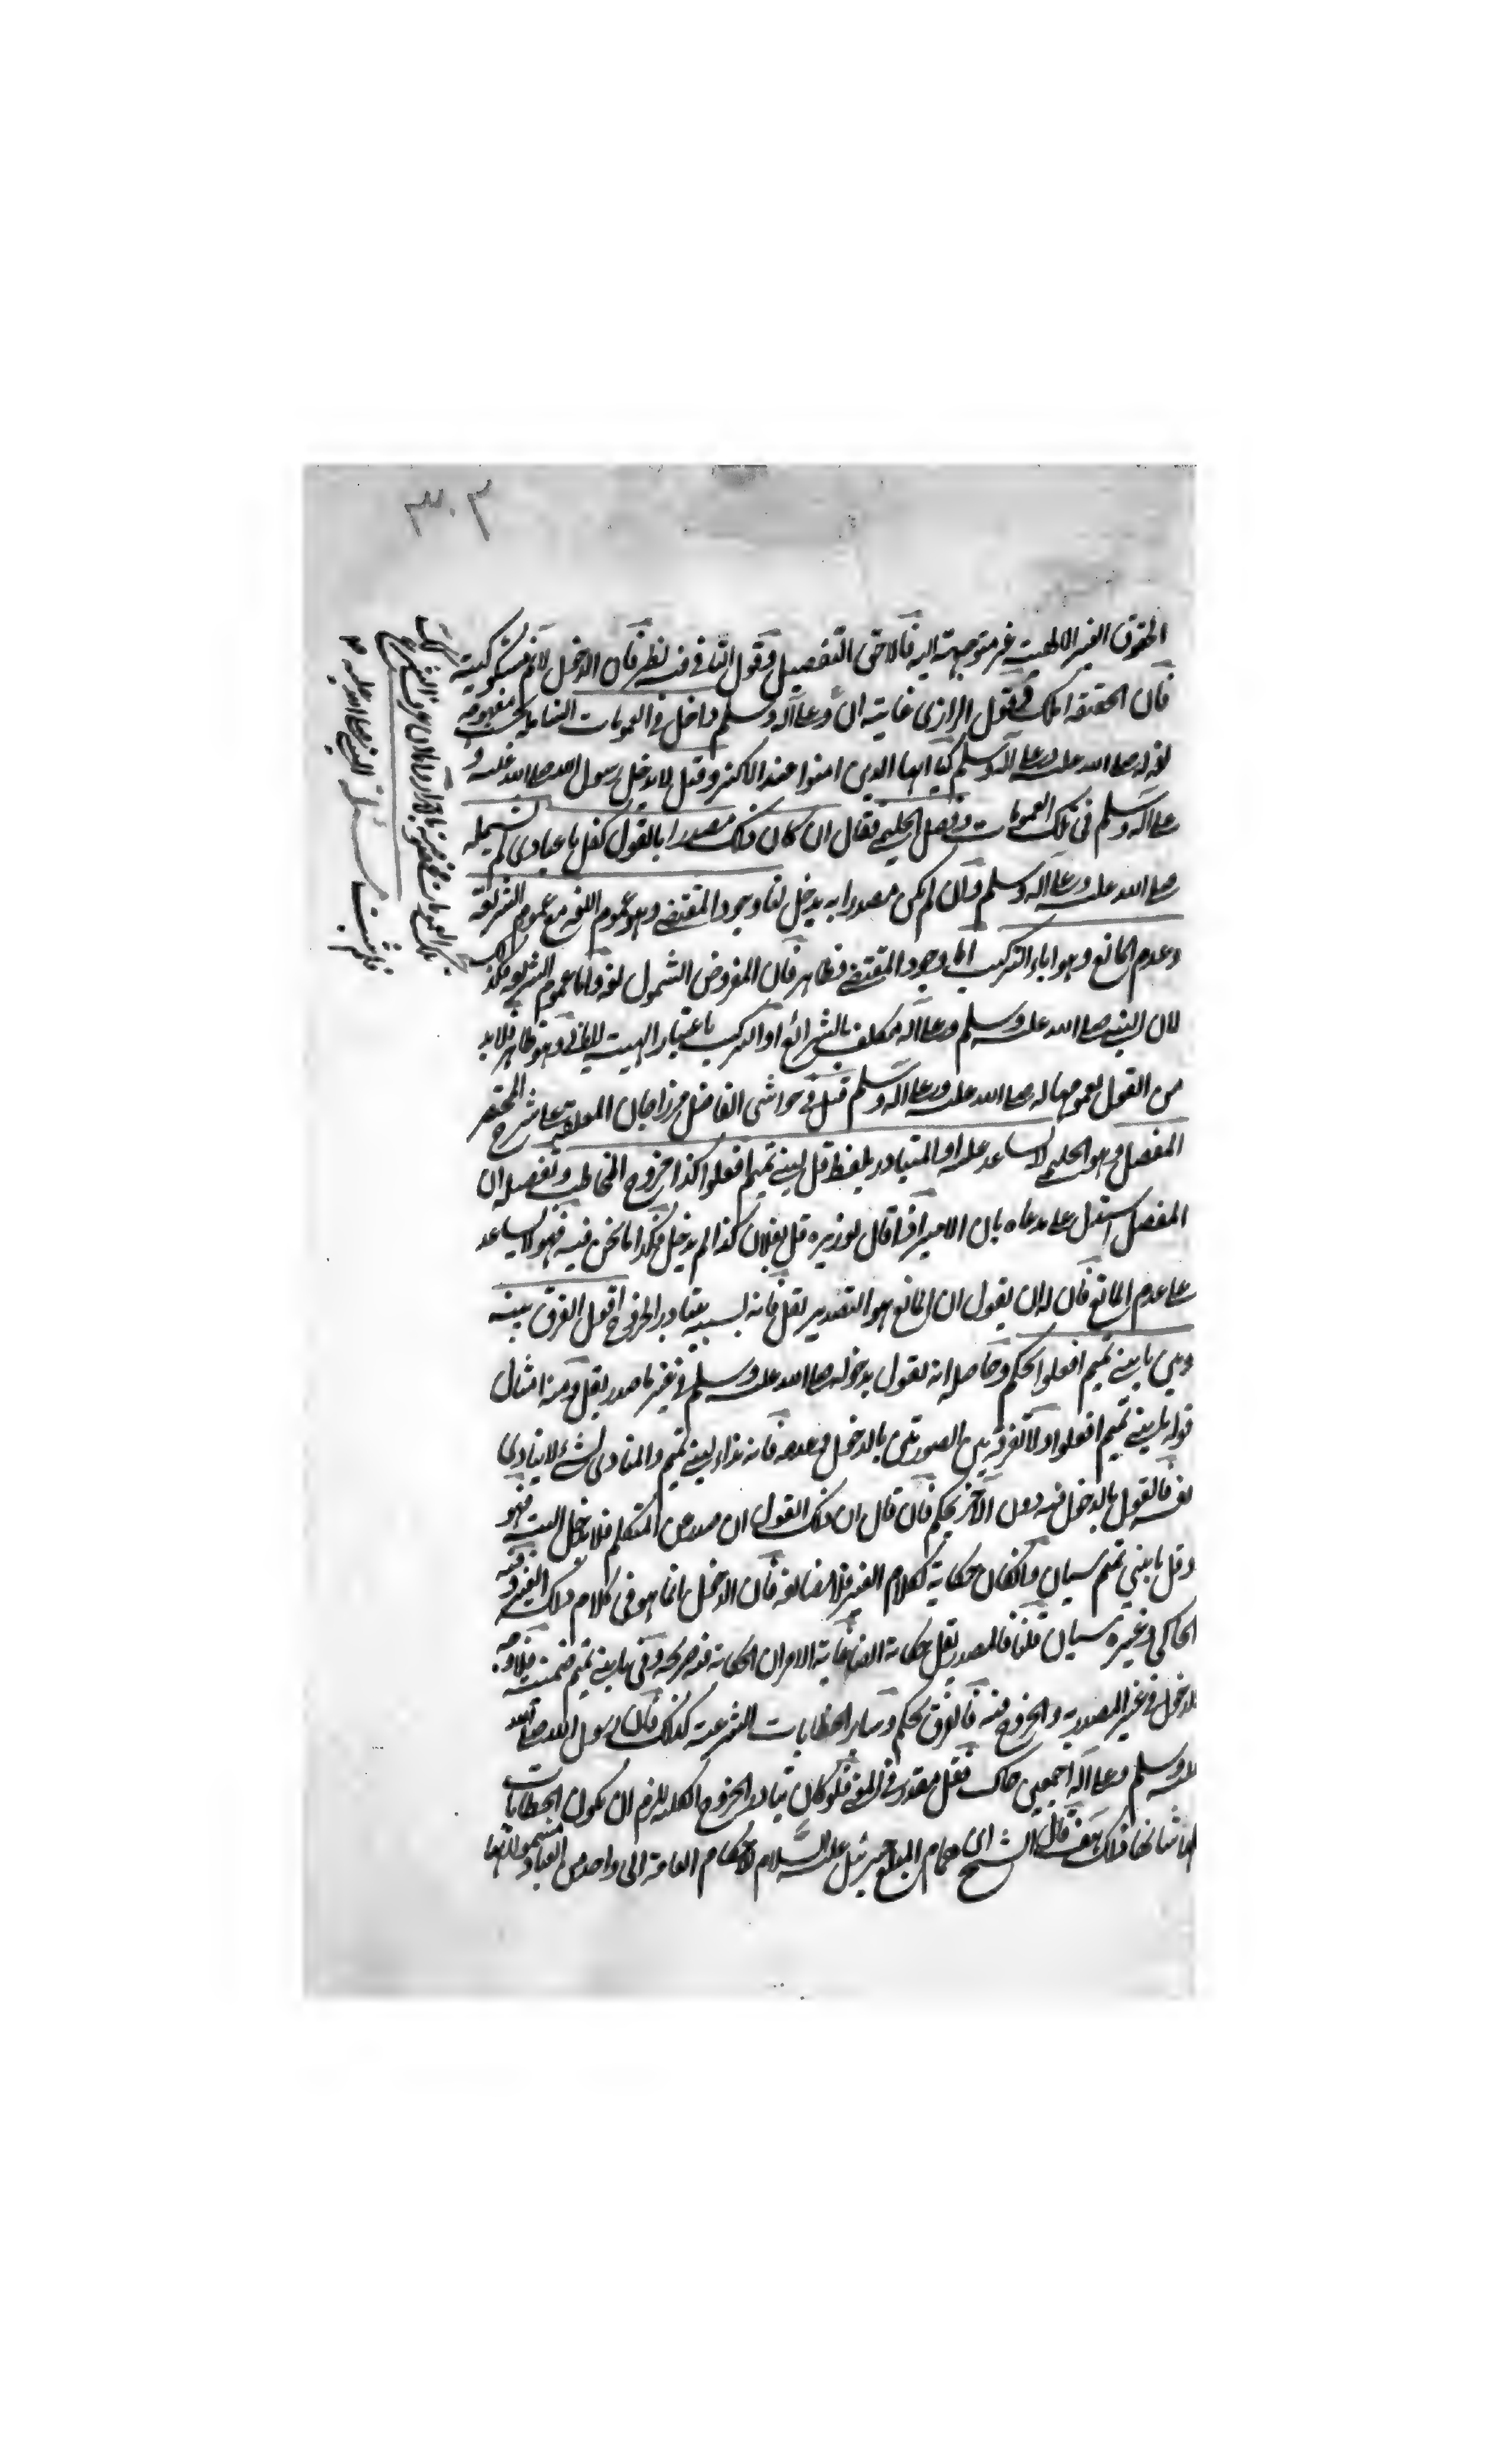 ٣٠٣
الحقوق الغير الالهية غير متوجهة اليه فالاحق التفصيل وقول الثاني فيه نظر فان الدخل لانم مشكوكية
فان الحقيقة املك في قول الرازي غايته ان وعلى آله وسلم داخل في العمومات الشاملة بحسب مفهومه
لغة له صلى الله عليه وعلى آله وسلم كيا ايها الذين امنوا عند الاكثر وقيل لا يدخل رسول الله صلى الله عليه و
على آله وسلم في تلك العمومات وفصل الحليمي فقال ان كان ذلك مصدرا بالقول كقل يا عبادي لم يشمله
صلى الله عليه وعلى آله وسلم وان لم يكن مصدرا به يدخل لنا وجود المقتضي وهو عموم اللغة مع عموم الشريعة
وعدم المانع وهو اباء التركيب اما وجود المقتضي فظاهر فان المفروض الشمول لغة واما عموم الشريعة فكذلك
لان النبي صلى الله عليه وسلم وعلى آله مكلف بالشرائع او التركيب باعتبار الهيئة للمانع وهو ظاهر فلا بد
من القول بعمومها له صلى الله عليه وعلى آله وسلم قيل في حواشي الفاضل ميرزا جان المعلقة على شرح المختصر
المفصل وهو الحليمي لا يساعد عليه او المتبادر بلفظ قل لبني تميم افعلوا كذا خروج المخاطب وتفصيله ان
المفصل استدل على مدعاه بان الامير اذا قال لوزيره قل لفلان كذا لم يدخل فكذا ما نحن فيه فهو لا يساعد
على عدم المانع فان له ان يقول ان المانع هو التصدير بقل فانه لسببه يتبادر الخروج اقول الفرق بينه
وبين يا بني تميم افعلوا تحكم وحاصله انه يقول بدخوله صلى الله عليه وسلم في غير ما صدر بقل ومنه امثال
قوله يا بني تميم افعلوا ولا تفرقة بين الصورتين بالدخول وعدمه فانه نداء لبني تميم والمنادي لشيء لا ينادي
نفسه فالقول بالدخول فيه دون الآخر تحكم فان قال ان ذلك القول ان صدر من المتكلم فلا دخل البتة فهو
وقل يا بني تميم سيان وان كان حكاية لكلام الغير فلا مضائقة فان الدخل انما هو في كلام ذلك الغير وفيه
الحاكي وغيره سيان قلنا فالمصدر بقل حكاية ايضا غاية الامر ان الحكاية فيه صريحة وفي يا بني تميم ضمنية فلا وجه
للدخول في غير المصدر به والخروج فيه فالفرق تحكم وسائر الخطابات الشرعية كذلك فان رسول الله صلى الله
عليه وسلم وعلى آله اجمعين حاك فقل مقدر في المعنى فلو كان تبادر الخروج الكلية للزم ان يكون الخطابات
باسرها شانها ذلك هف قال الشيخ ابن همام المبلغ جبرئيل عليه السلام للاحكام العامة الى واحد من العباد مشمولاتها